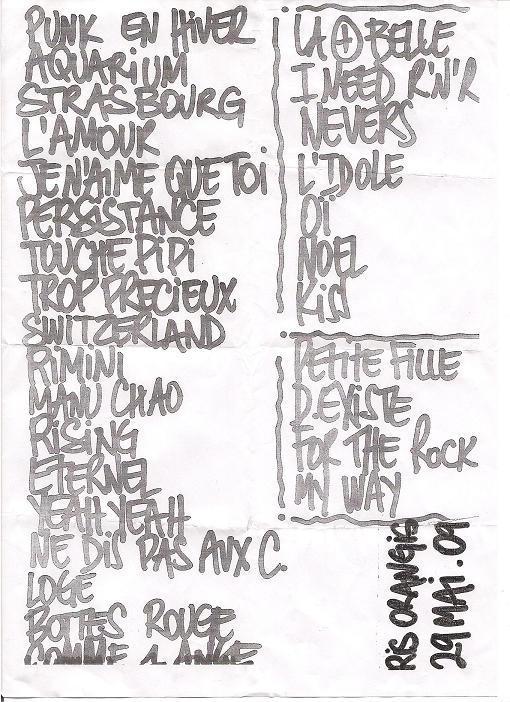 PUNK EN HIVER
AQUARiUM
STRASBOURG
L'AMOUR
JE N'AiME QUE TOi
PERSiSTANCE
TOUCHE PiPi
TROP PRECiEUX
SWITZERLAND
RiMiNi
MANU CHAO
RiSiNG
ETERNEL
YEAH YEAH
NE DiS PAS AUX C.
LOGE
BOTTES ROUGE
COMME 1 ANGE
LA + BELLE
I NEED R'N'R
NEVERS
L'IDOLE
OÏ
NOEL
KiSS
PETiTE FiLLE
D.EXiSTE
FOR THE ROCK
MY WAY
RiS ORANGiS
29 MAi.09